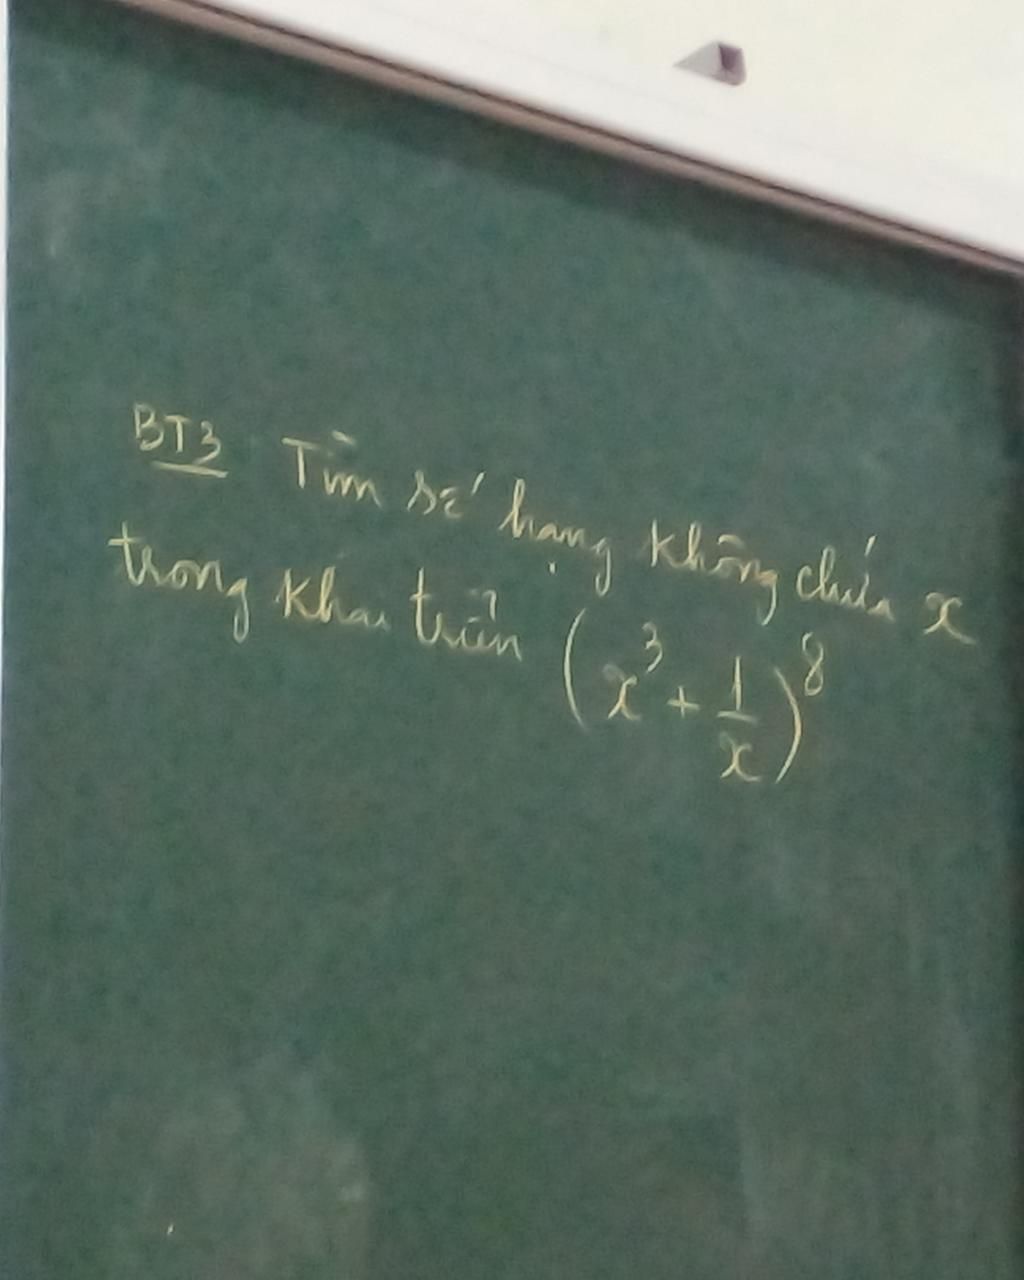 BT3 Tìm số hạng không chứa x
trong khai triển (x³ + 1/x)⁸